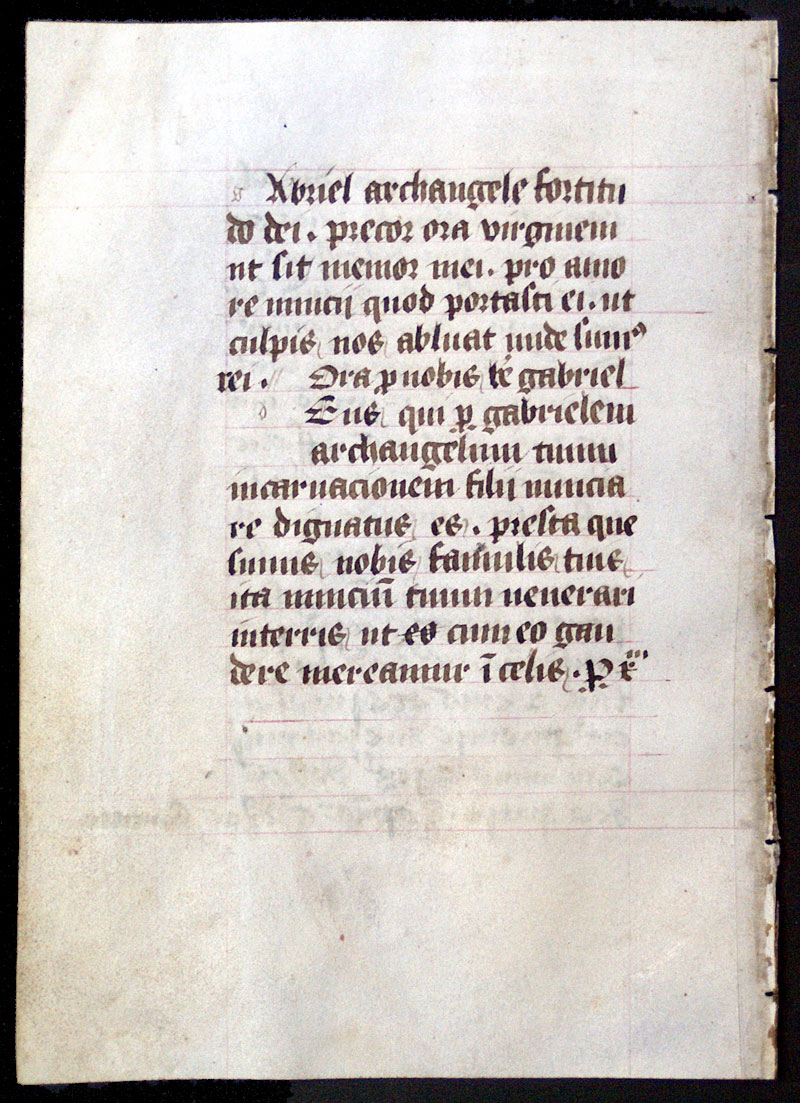 g Abriel archangele fortitu
do dei. precor ora virginem
ut sit memor mei. pro amo
re nuncij quod portasti ei. ut
culpis nos abluat unde sumꝰ
rei. Ora ꝓ nobis bē gabriel
d Eus qui ꝑ gabrielem
archangelum tuum
incarnacionem filij nuncia
re dignatus es. presta que
sumus nobis famulis tuis
ita nunciū tuum venerari
interris ut eo cum eo gau
dere mereamur ī celis. P